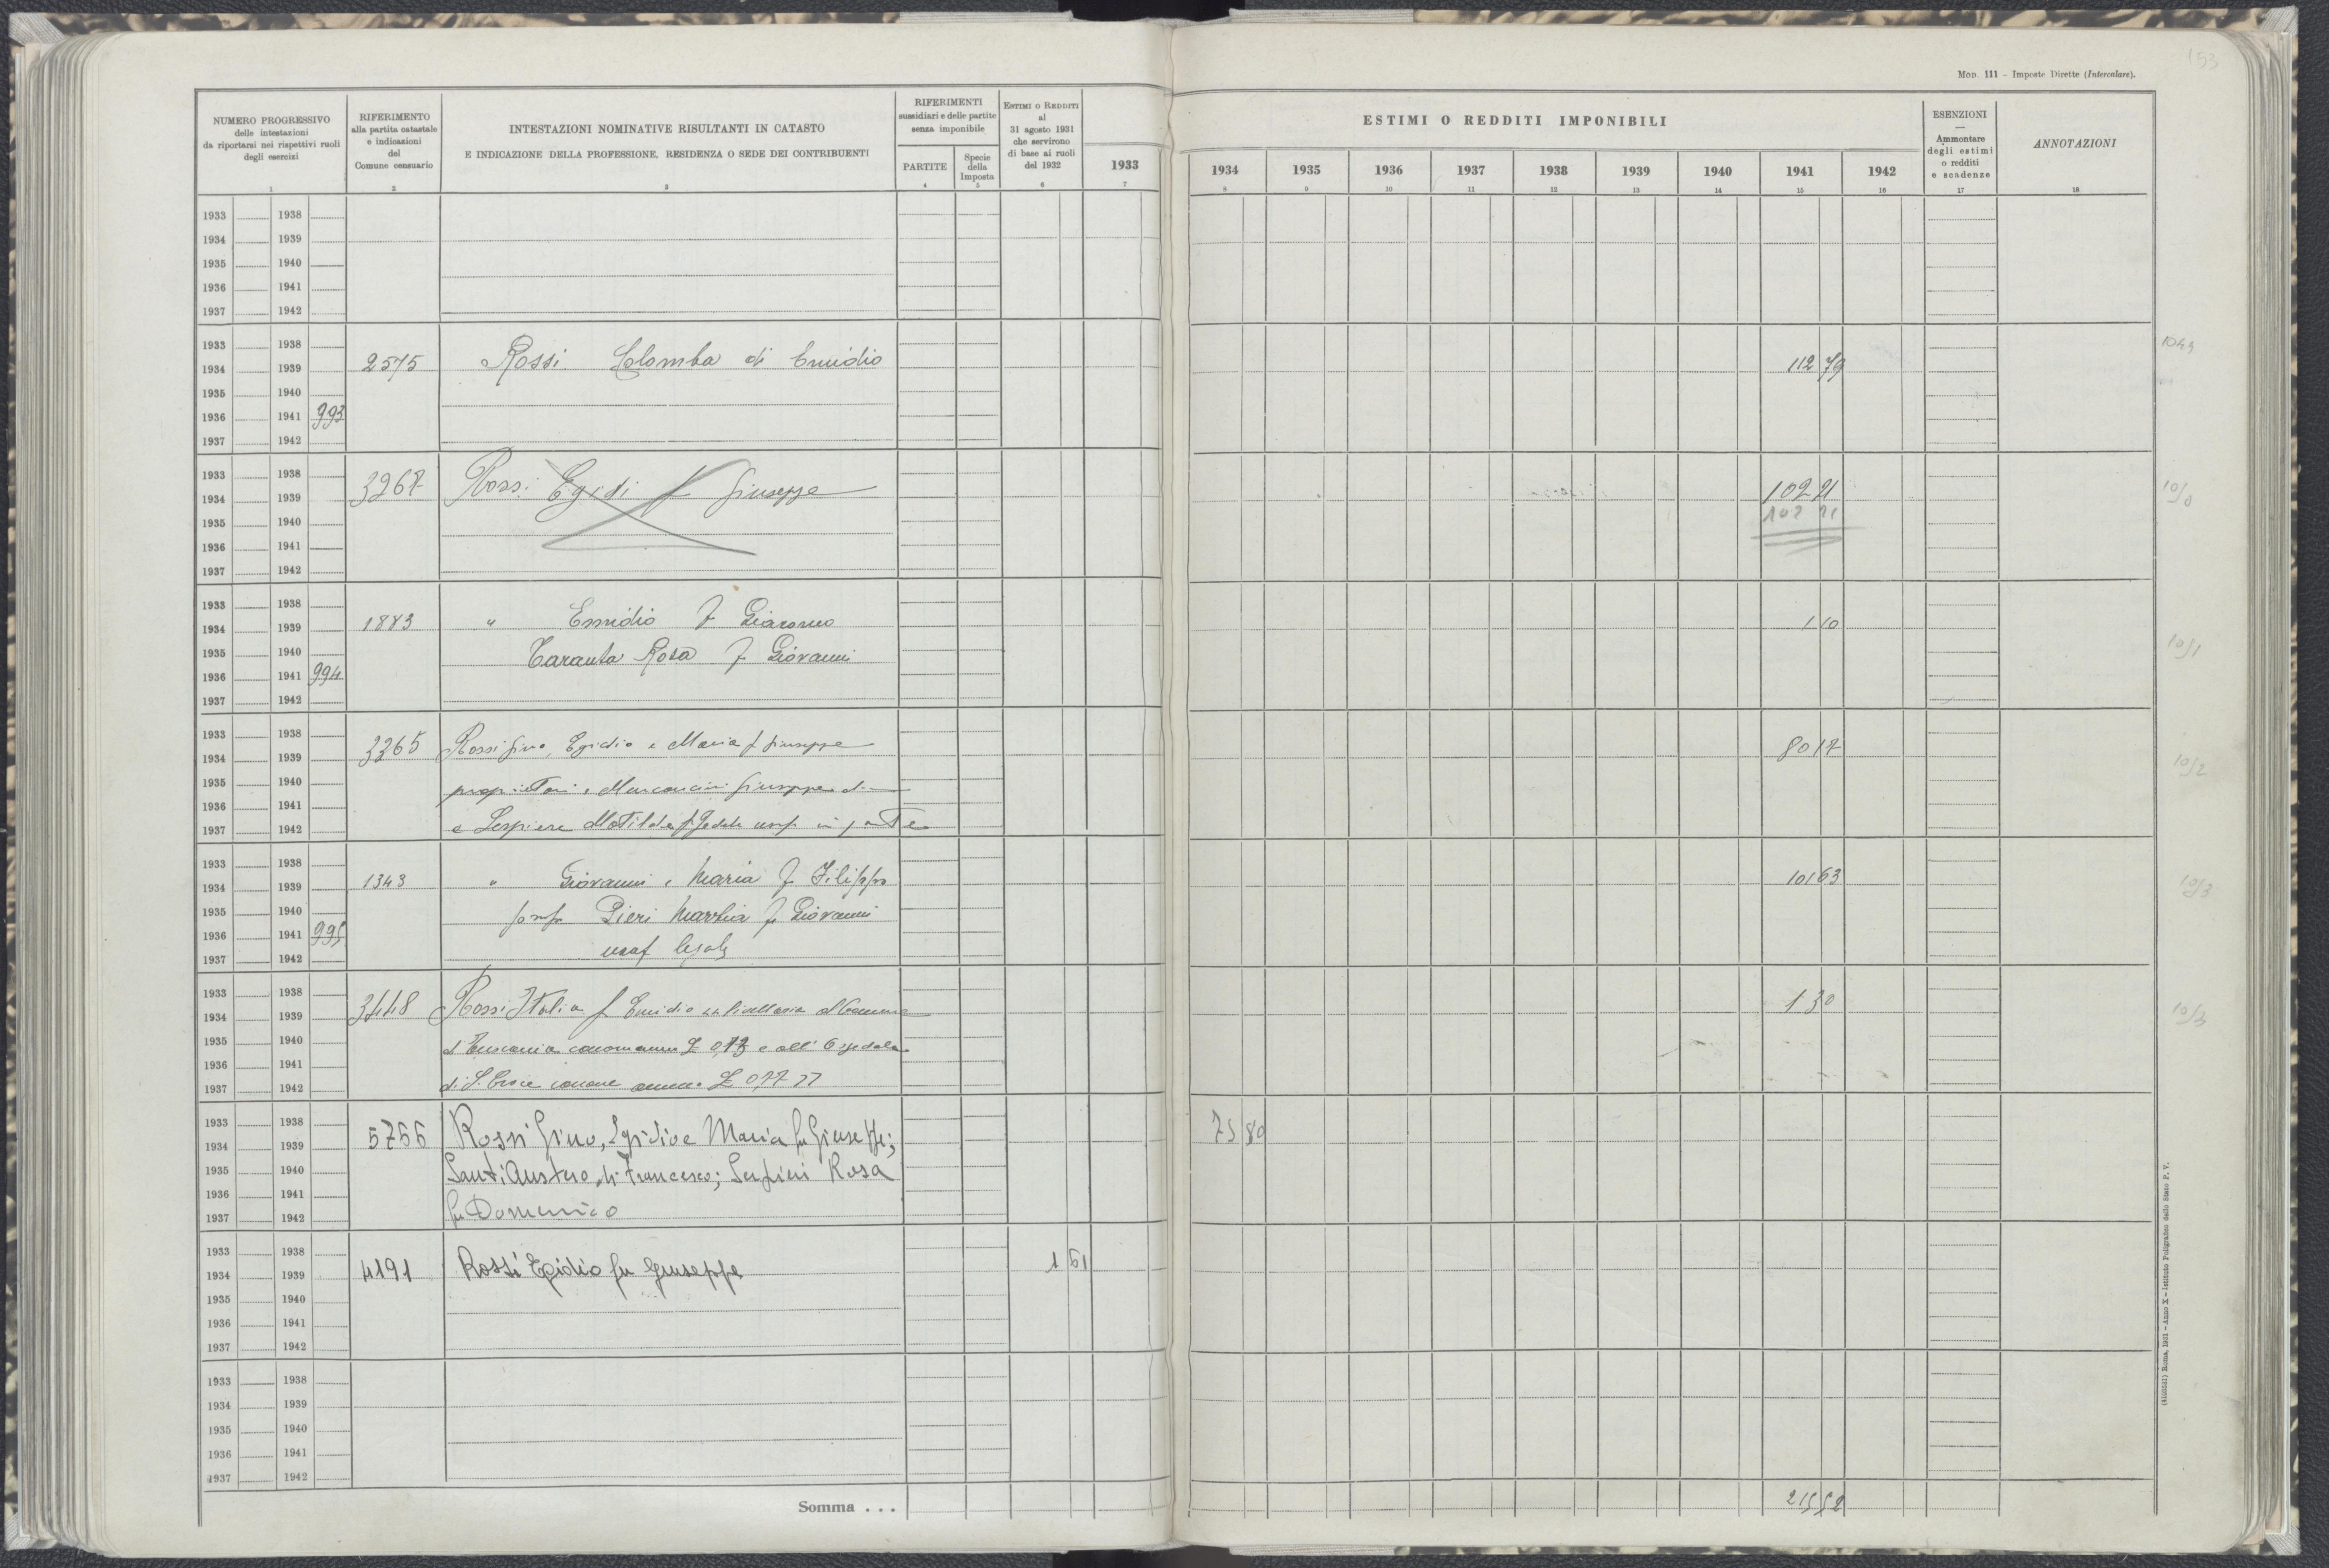 153
Mod. 111 - Imposte Dirette (Intercalare).
NUMERO PROGRESSIVO
delle intestazioni
da riportarsi nei rispettivi ruoli
degli esercizi
1
RIFERIMENTO
alla partita catastale
e indicazioni
del
Comune censuario
2
INTESTAZIONI NOMINATIVE RISULTANTI IN CATASTO
E INDICAZIONE DELLA PROFESSIONE, RESIDENZA O SEDE DEI CONTRIBUENTI
3
RIFERIMENTI
sussidiari e delle partite
senza imponibile
PARTITE
4
Specie
della
Imposta
5
ESTIMI O REDDITI
al
31 agosto 1931
che servirono
di base ai ruoli
del 1932
6
1933
7
ESTIMI O REDDITI IMPONIBILI
1934 1935 1936 1937 1938 1939 1940 1941 1942
8 9 10 11 12 13 14 15 16
ESENZIONI
—
Ammontare
degli estimi
o redditi
e scadenze
17
ANNOTAZIONI
18
1933 1938
1934 1939
1935 1940
1936 1941
1937 1942
1933 1938
1934 1939 2575 Rossi Colomba di Emidio 112 79
1935 1940
1936 1941 993
1937 1942
1933 1938
1934 1939 3267 Rossi Egidi f Giuseppe 102 21
102 21
1935 1940
1936 1941
1937 1942
1933 1938
1934 1939 1883 " Emidio f Giacomo 1 10
1935 1940 Taranta Rosa f Giovanni
1936 1941 994
1937 1942
1933 1938
1934 1939 3265 Rossi Gino, Egidio e Maria f Giuseppe 80 17
1935 1940
1936 1941 proprietari e Giuseppe di
1937 1942 e Matilde f usuf. in parte
1933 1938
1934 1939 1343 " Giovanni e Maria f Filippo 101 63
1935 1940 Pieri Marzia f Giovanni
1936 1941 995
1937 1942 usuf legale
1933 1938
1934 1939 3448 Rossi Italia f Emidio livellaria al Comune 1 30
1935 1940 di Tuscania canone annuo £ 0,13 e all' Ospedale
1936 1941
1937 1942 di S. Croce canone annuo £ 0,77
1933 1938
1934 1939 5766 Rossi Gino, Egidio e Maria fu Giuseppe; 75 80
1935 1940 Santi Austero di Francesco; Serpieri Rosa
1936 1941
1937 1942 fu Domenico
1933 1938
1934 1939 4191 Rossi Egidio fu Giuseppe 1 61
1935 1940
1936 1941
1937 1942
1933 1938
1934 1939
1935 1940
1936 1941
1937 1942
Somma . . . 215 52
(4193531) Roma, 1931 - Anno X - Istituto Poligrafico dello Stato P. V.